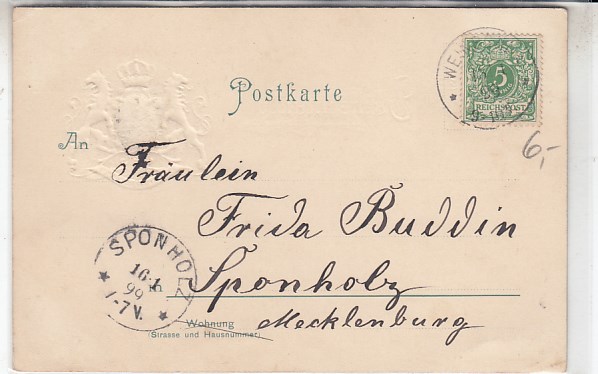 Postkarte
5
REICHSPOST
6,-
An
Fräulein
Frida Buddin
SPONHOLZ
16.1
99
in
Sponholz
Wohnung
(Strasse und Hausnummer)
Mecklenburg